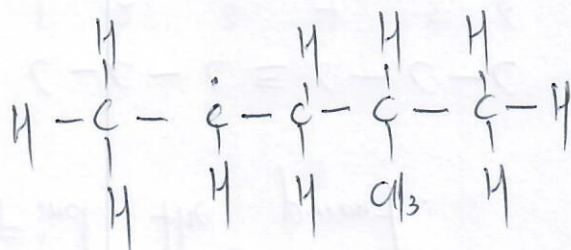 H H H H
H - C - C - C - C - C - H
H H H CH3 H